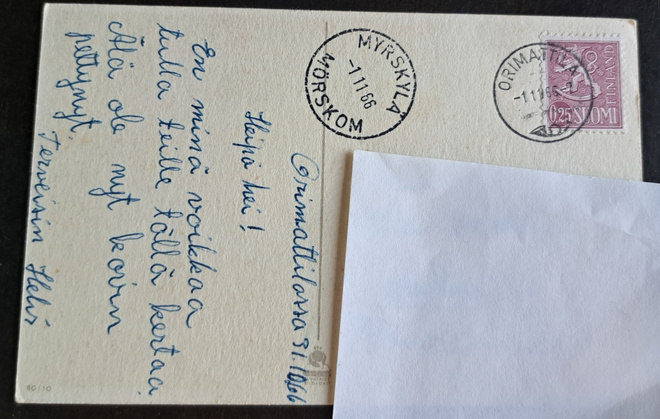 Orimattilassa 31.10.66
Heipä hei!
En minä voikkaa
tulla teille tällä kertaa
Älä ole nyt kovin
pettynyt.
Terveisin Heli
MYRSKYLÄ
-1.11.66
MÖRSKOM
ORIMATTILA
-1.11.66
0,25 SUOMI
FINLAND
60/10